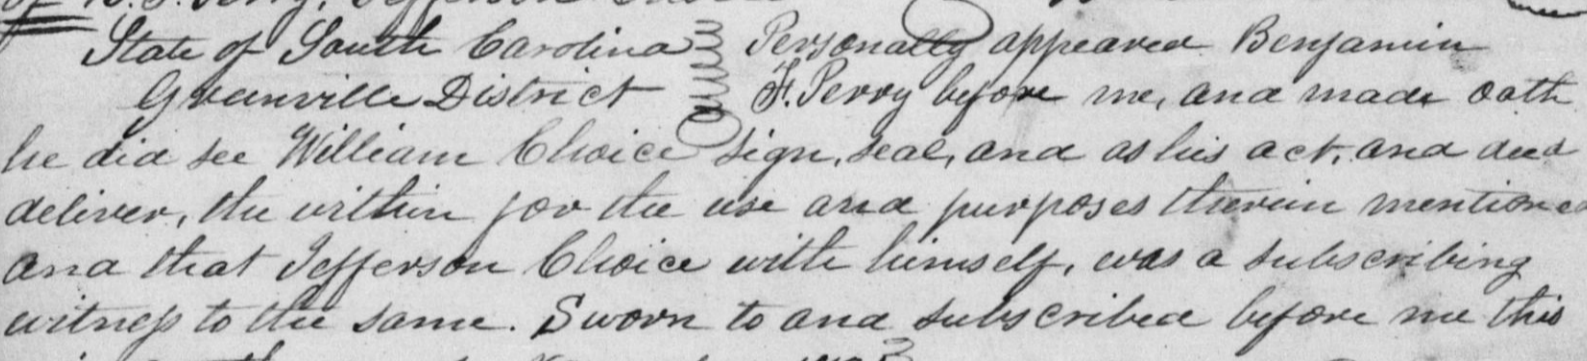 State of South Carolina Personally appeared Benjamin
Greenville District F. Perry before me, and made oath
he did see William Choice sign, seal, and as his act, and deed
deliver, the within for the use and purposes therein mentioned
and that Jefferson Choice with himself, was a subscribing
witness to the same. Sworn to and subscribed before me this